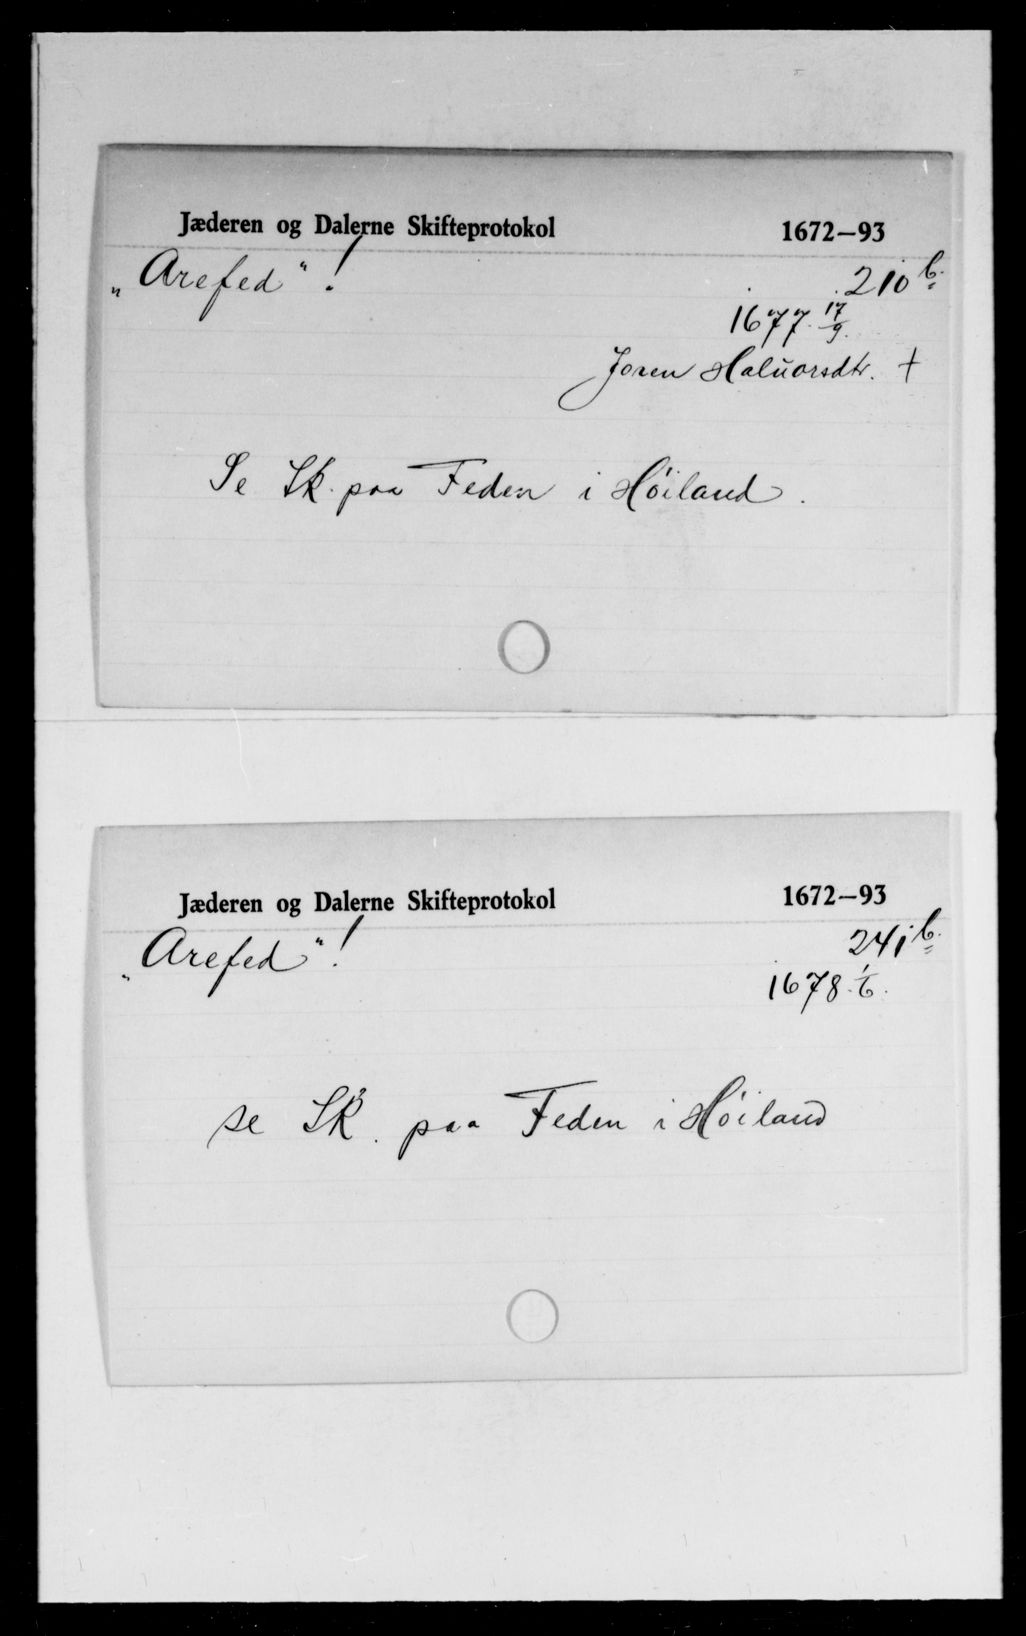 Jæderen og Dalerne Skifteprotokol 1672–93
„Arefed“! 210 b.
1677 17/9.
Joren Haluorsdtr. †
Se Sk. paa Feden i Höiland.
Jæderen og Dalerne Skifteprotokol 1672–93
„Arefed“! 241 b.
1678. 1/6.
se Sk. paa Feden i Höiland